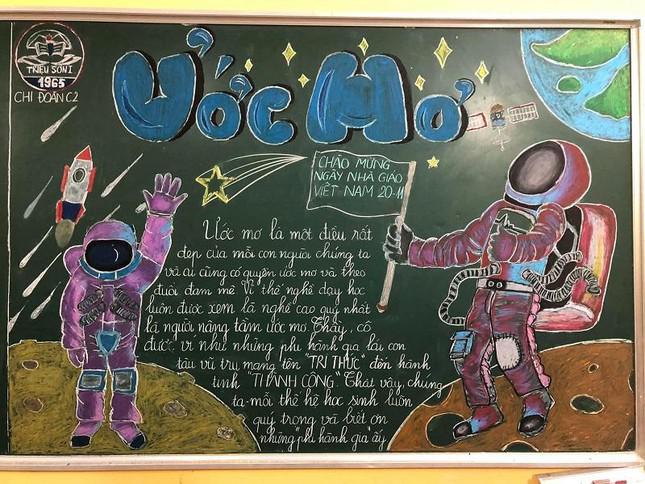 TRIỆU SƠN 1
1965
CHI ĐOÀN C2
ƯỚC MƠ
CHÀO MỪNG
NGÀY NHÀ GIÁO
VIỆT NAM 20-11
Ước mơ là một điều rất
đẹp của mỗi con người chúng ta
và ai cũng có quyền ước mơ và theo
đuổi đam mê. Vì thế nghề dạy học
luôn được xem là nghề cao quý nhất
là người nâng tầm ước mơ. Thầy, cô
được ví như những phi hành gia lái con
tàu vũ trụ mang tên "TRI THỨC" đến hành
tinh "THÀNH CÔNG". Thật vậy, chúng
ta-mỗi thế hệ học sinh luôn
quý trọng và biết ơn
những "phi hành gia" ấy